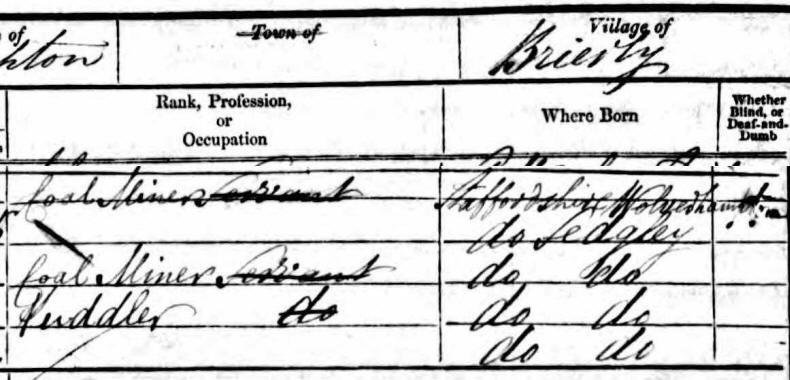 of Town of Village of
pton Brierly
Rank, Profession, or Occupation Where Born Whether Blind, or Deaf-and-Dumb
Coal Miner Servant Staffordshire Wolverhampton
do Sedgley
Coal Miner Servant do do
Puddler do do do
do do